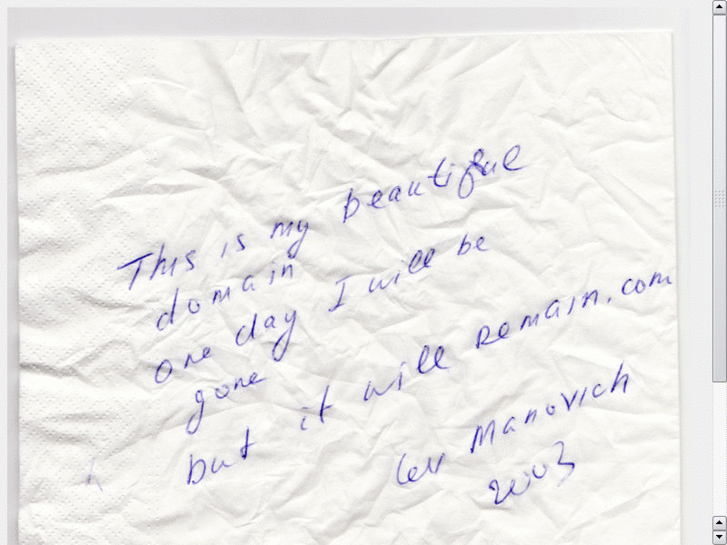 This is my beautiful
domain
one day I will be
gone
but it will remain.com
Lev Manovich
2003